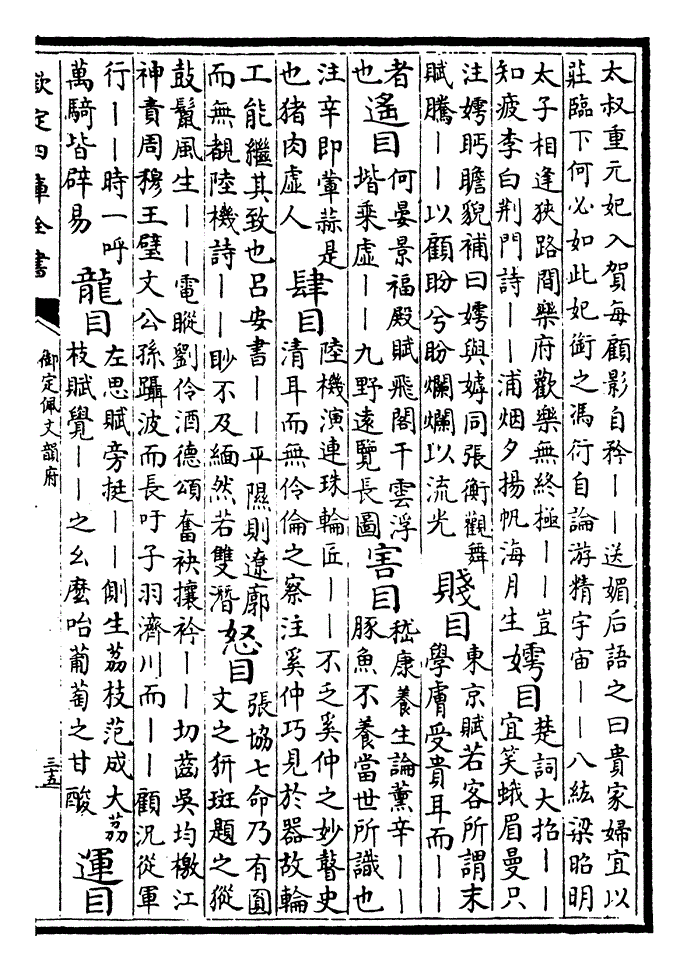 太叔重元妃入賀每顧影自矜丨丨送媚后語之曰貴家婦宜以
莊臨下何必如此妃銜之馮衍自論游精宇宙丨丨八紘梁昭明
太子相逢狹路間樂府歡樂無終極丨丨豈
知疲李白荆門詩丨丨浦烟夕揚帆海月生
嫮目
楚詞大招丨丨
宜笑蛾眉曼只
注嫮眄瞻貌補曰嫮與嫭同張衡觀舞
賦騰丨丨以顧盼兮盼爛爛以流光
賤目
東京賦若客所謂末
學膚受貴耳而丨丨
者
也
遙目
何晏景福殿賦飛閣干雲浮
堦乘虛丨丨九野遠覽長圖
害目
嵇康養生論薰辛丨丨
豚魚不養當世所識也
注辛即葷蒜是
也猪肉虛人
肆目
陸機演連珠輪匠丨丨不乏奚仲之妙瞽史
清耳而無伶倫之察注奚仲巧見於器故輪
工能繼其致也呂安書丨丨平隰則遼廓
而無覩陸機詩丨丨眇不及緬然若雙潛
怒目
張協七命乃有圓
文之豜斑題之豵
鼓鬣風生丨丨電瞛劉伶酒德頌奮袂攘衿丨丨切齒吳均檄江
神責周穆王璧文公孫躡波而長吁子羽濟川而丨丨顧況從軍
行丨丨時一呼
萬騎皆辟易
龍目
左思賦旁挺丨丨側生荔枝范成大荔
枝賦覺丨丨之么麼咍葡萄之甘酸
運目
欽定四庫全書
御定佩文韻府
三五